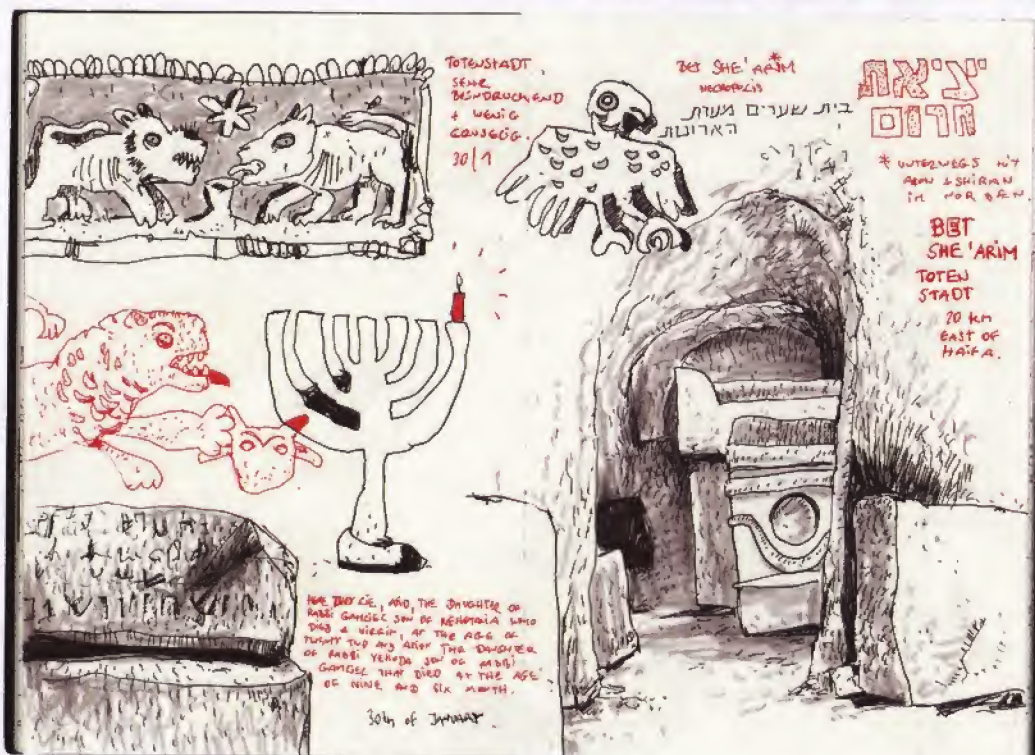 TOTENSTADT.
SEHR
BEINDRUCKEND
+ WENIG
30/1
BET SHE'ARIM*
NECROPOLIS
בית שערים מערת
הארונות
יציאת
חרום
* UNTERWEGS MIT
& SHIRAN
IM NORDEN
BET
SHE'ARIM
TOTEN
STADT
20 KM
EAST OF
HAIFA.
HERE THEY LIE, THE DAUGHTER OF
RABBI GAMLIEL SON OF NEHEMIA WHO
DIED A VIRGIN, AT THE AGE OF
TWENTY TWO AND THE DAUGHTER
OF RABBI YEHUDA SON OF RABBI
GAMLIEL THAT DIED AT THE AGE
OF NINE AND SIX MONTH.
30th of JANUARY.